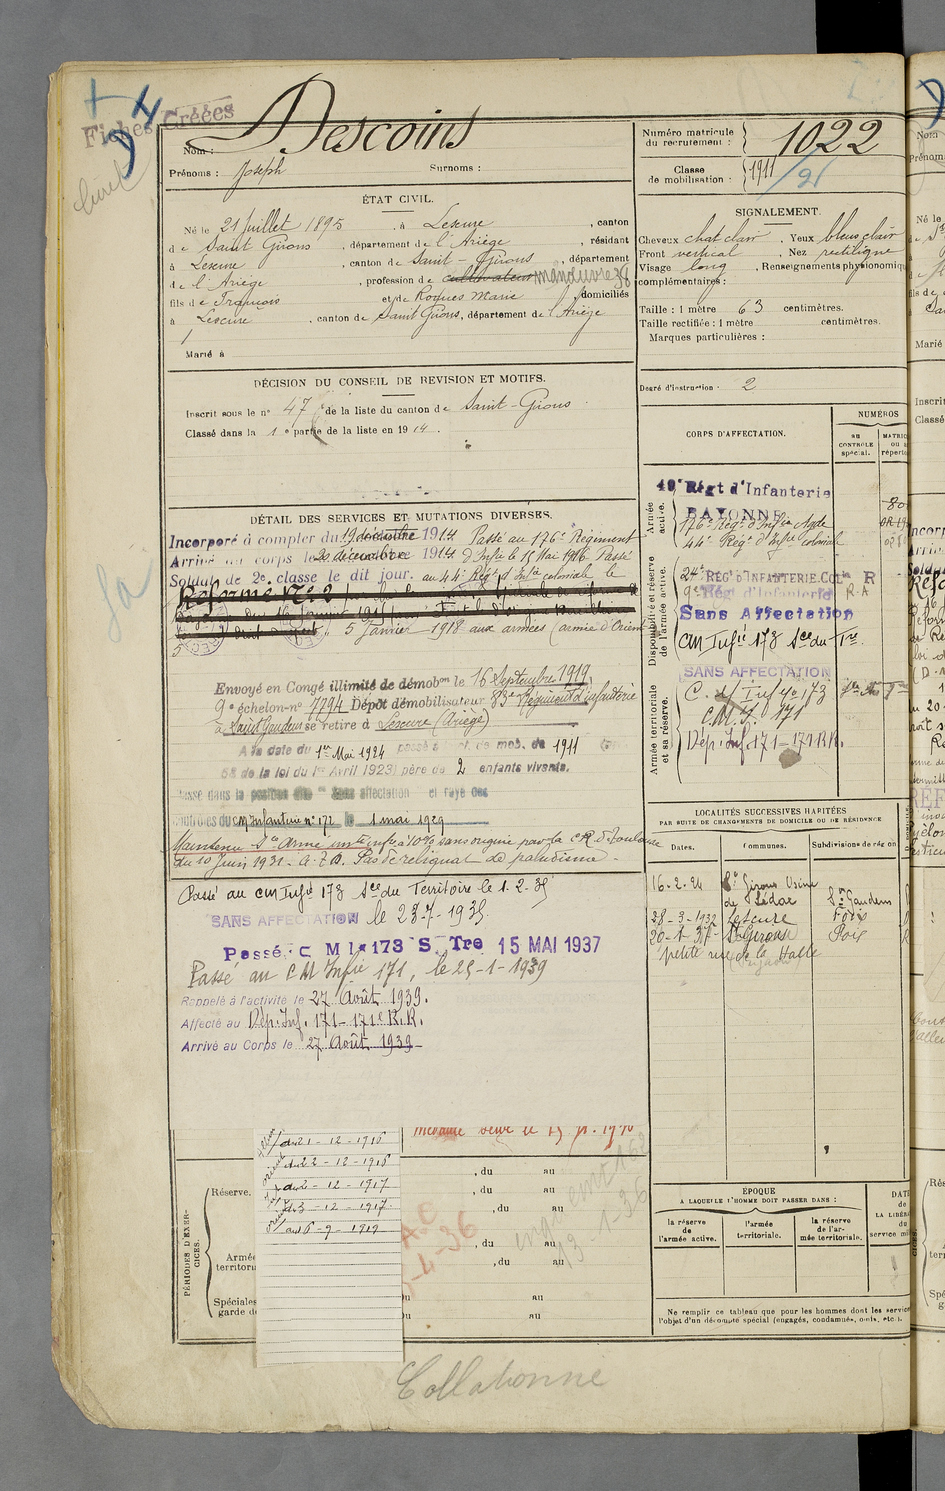 Fiches Créées
Nom : Descoins
Prénoms : Joseph Surnoms :
Numéro matricule du recrutement : 1022
Classe de mobilisation : 1911
ÉTAT CIVIL.
Né le 21 Juillet 1895, à Lescure, canton
de Saint Girons, département de l'Ariège, résidant
à Lescure, canton de Saint-Girons, département
de l'Ariège, profession de cultivateur manœuvre 38
fils de François et de Roques Marie, domiciliés
à Lescure, canton de Saint Girons, département de l'Ariège
Marié à
SIGNALEMENT.
Cheveux chat clair. Yeux bleus clair
Front vertical. Nez rectiligne
Visage long, Renseignements physionomiq
complémentaires :
Taille : 1 mètre 63 centimètres.
Taille rectifiée : 1 mètre centimètres.
Marques particulières :
Degré d'instruction : 2
DÉCISION DU CONSEIL DE REVISION ET MOTIFS.
Inscrit sous le n° 47 de la liste du canton de Saint-Girons.
Classé dans la 1e partie de la liste en 1914.
CORPS D'AFFECTATION.
NUMÉROS
AU CONTRÔLE spécial.
Armée active.
49e Régt d'Infanterie
BAYONNE
176e Régt d'Infie
44e Régt d'Infie coloniale
Disponibilité et réserve de l'armée active.
24e RÉG. D'INFANTERIE. Colle R
9e Régt d'Infanterie R.A
Sans Affectation
CM Infie 173 Sce du Tre
SANS AFFECTATION
Armée territoriale et sa réserve.
C. M Inf 173
C.M.I. 171
Dép. Inf. 171 - 171 R.R.
DÉTAIL DES SERVICES ET MUTATIONS DIVERSES.
Incorporé à compter du 19 décembre 1914 Passé au 176e Régiment
Arrivé au corps le 20 décembre 1914 d'Infie le 15 Mai 1916 Passé
Soldat de 2e classe le dit jour. au 44e Régt d'Infie coloniale le
Réformé N° 2
5 Janvier 1918 aux armées (armée d'Orient
Envoyé en Congé illimité de démobon le 16 Septembre 1919,
9e échelon-n° 7794 Dépôt démobilisateur 83e Régiment d'infanterie
à Saint Gaudens se retire à Lescure (Ariège)
A la date du 1er Mai 1924 passé à cl. de mob. de 1911
58 de la loi du 1er Avril 1923) père de 2 enfants vivants.
Classé dans la position dite "Sans affectation" et rayé des
contrôles du CM Infanterie n° 172 le 1 mai 1929
Maintenu Sce Armé inv infe à 10% sans origine par la CR de Toulouse
du 10 Juin 1931. A.T.D. Pas de reliquat de paludisme.
Passé au CM Infie 173 Sce du Territoire le 1.2.35
SANS AFFECTATION le 23-7-1935
Passé C M I 173 S. Tre 15 MAI 1937
Passé au CM Infie 171, le 25-1-1939
Rappelé à l'activité le 27 Août 1939.
Affecté au Dép. Inf. 171 - 171e R.R.
Arrivé au Corps le 27 Août 1939
LOCALITÉS SUCCESSIVES HABITÉES
PAR SUITE DE CHANGEMENTS DE DOMICILE OU DE RÉSIDENCE
Dates. Communes. Subdivisions de région
16-2-24 St Girons Usine de Lédar St Gaudens
28-3-1932 Lescure Foix
20-1-37 St Girons Foix
petite rue de la Halle
du 21-12-1916
au 22-12-1916
du 2-12-1917
au 3-12-1917
au 6-9-1919
PÉRIODES D'EXERCICES.
Réserve.
, du au
, du au
, du au
Armée territori
, du au
, du au
Spéciales garde de
du au
du au
ÉPOQUE
À LAQUELLE L'HOMME DOIT PASSER DANS :
la réserve de l'armée active.
l'armée territoriale.
la réserve de l'armée territoriale.
DATE de LA LIBÉRA du service mil
Ne remplir ce tableau que pour les hommes dont les service
l'objet d'un décompte spécial (engagés, condamnés, omis, etc.).
Collationné